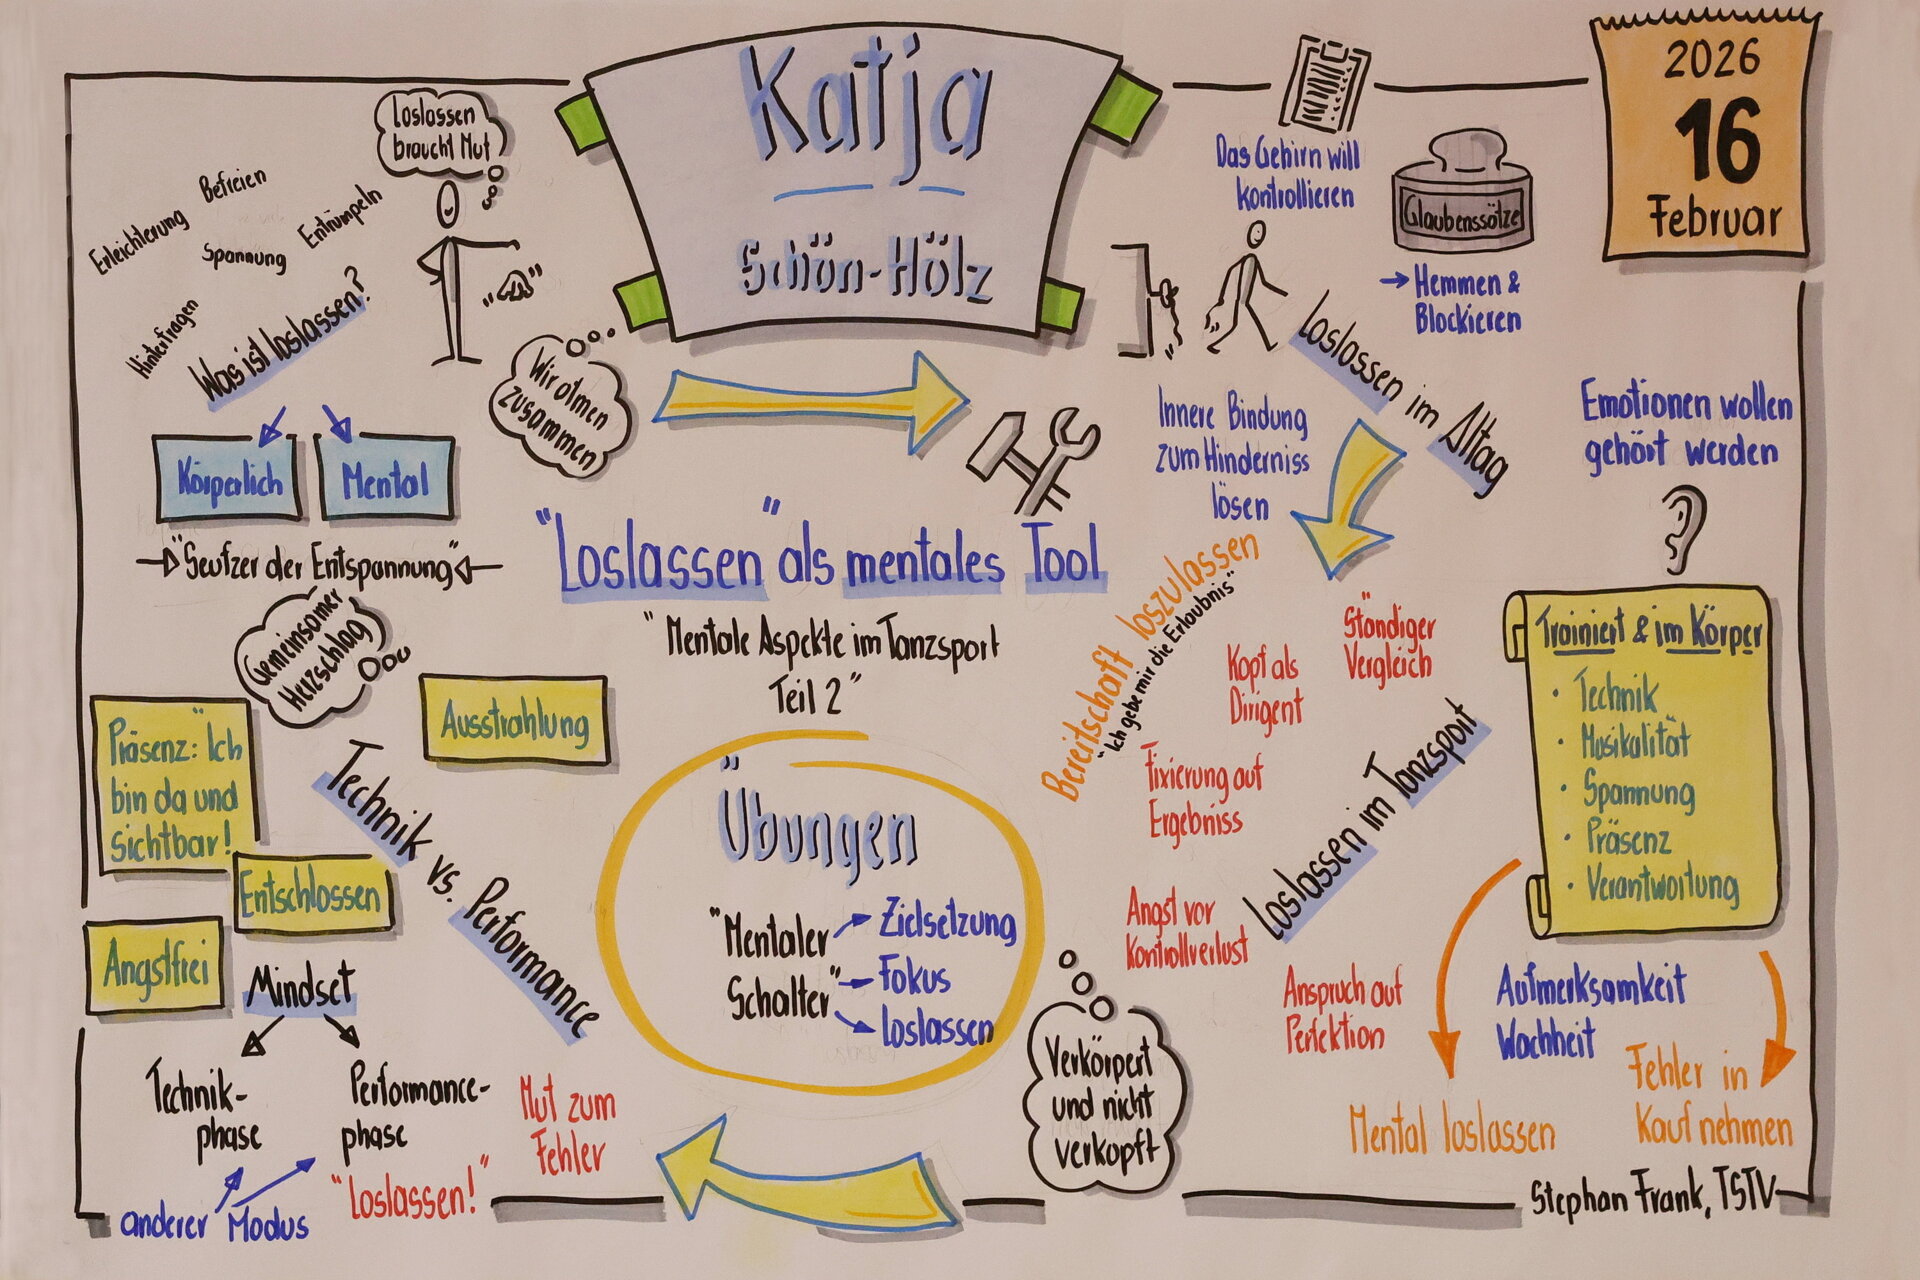 Katja
Schön-Hölz
2026
16
Februar
Loslassen
braucht Mut
Befreien
Erleichterung
Entrümpeln
Spannung
Hinterfragen
Was ist loslassen?
Körperlich
Mental
"Seufzer der Entspannung"
Wir atmen
zusammen
Gemeinsamer
Herzschlag
"Loslassen" als mentales Tool
"Mentale Aspekte im Tanzsport
Teil 2"
Das Gehirn will
kontrollieren
Glaubenssätze
→ Hemmen &
Blockieren
Loslassen im Alltag
Innere Bindung
zum Hinderniss
lösen
Emotionen wollen
gehört werden
Bereitschaft loszulassen
"Ich gebe mir die Erlaubnis"
Ständiger
Vergleich
Kopf als
Dirigent
Fixierung auf
Ergebniss
Angst vor
Kontrollverlust
Anspruch auf
Perfektion
Loslassen im Tanzsport
Trainiert & im Körper
· Technik
· Musikalität
· Spannung
· Präsenz
· Verantwortung
Aufmerksamkeit
Wachheit
Mental loslassen
Fehler in
Kauf nehmen
Verkörpert
und nicht
verkopft
Übungen
"Mentaler
Schalter"
Zielsetzung
Fokus
Loslassen
Technik vs. Performance
Ausstrahlung
Präsenz: "Ich
bin da und
Sichtbar!
Entschlossen
Angstfrei
Mindset
Technik-
phase
Performance-
phase
anderer Modus
"Loslassen!"
Mut zum
Fehler
Stephan Frank, TSTV